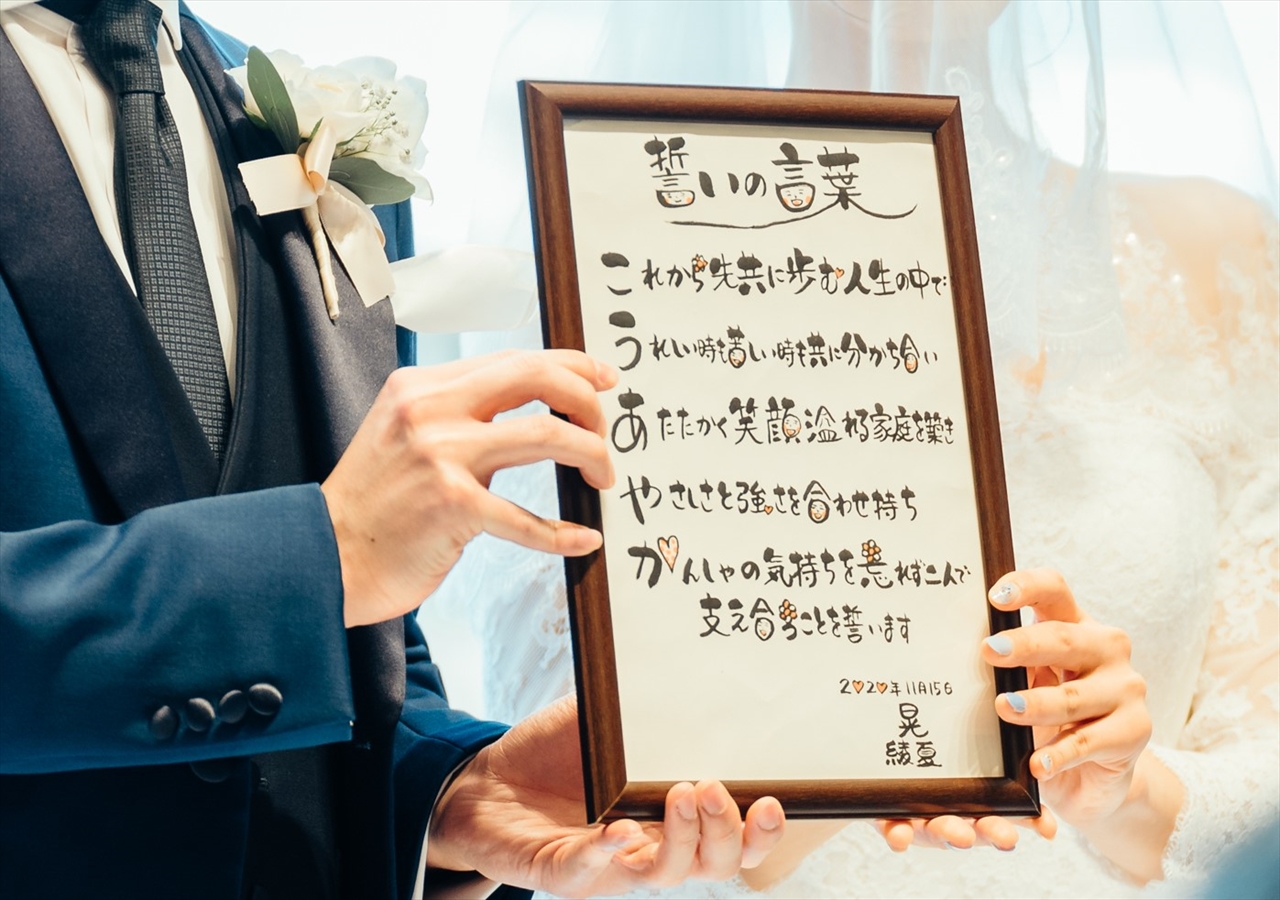 誓いの言葉
これから先共に歩む人生の中で
うれしい時も苦しい時も共に分かち合い
あたたかく笑顔溢れる家庭を築き
やさしさと強さを合わせ持ち
がんしゃの気持ちを忘れずニ人で
支え合うことを誓います
2020年11月15日
晃
綾夏